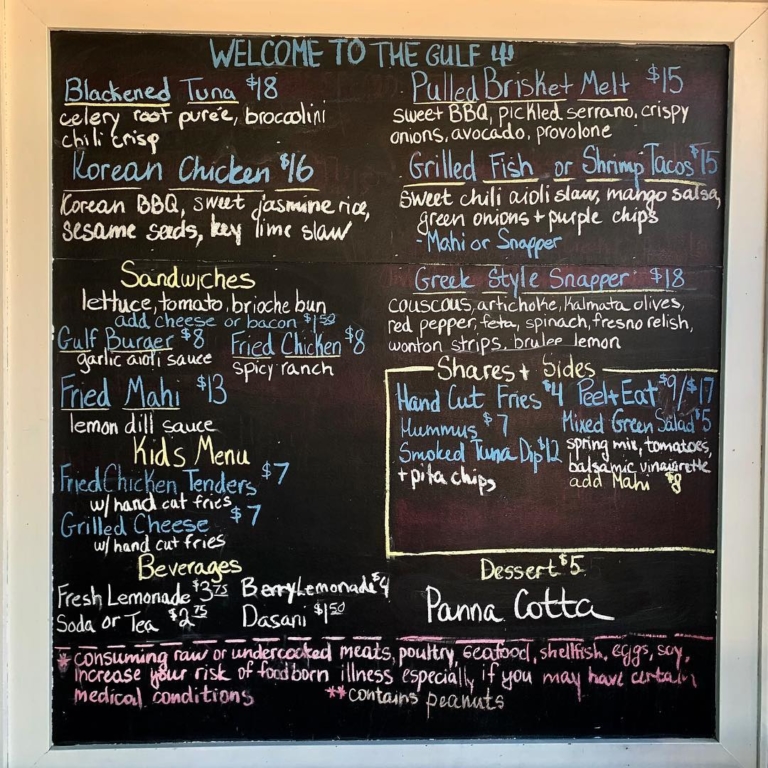 WELCOME TO THE GULF
Blackened Tuna $18
celery root pureé, broccolini
chili crisp
Korean Chicken $16
Korean BBQ, sweet jasmine rice,
sesame seeds, key lime slaw
Sandwiches
lettuce, tomato, brioche bun
add cheese or bacon $1.50
Gulf Burger $8 Fried Chicken $8
garlic aioli sauce spicy ranch
Fried Mahi $13
lemon dill sauce
Kids Menu
Fried Chicken Tenders $7
w/ hand cut fries
Grilled Cheese $7
w/ hand cut fries
Beverages
Fresh Lemonade $3.75 Berry Lemonade $4
Soda or Tea $2.75 Dasani $1.50
Pulled Brisket Melt $15
sweet BBQ, pickled serrano, crispy
onions, avocado, provolone
Grilled Fish or Shrimp Tacos $15
Sweet chili aioli slaw, mango salsa,
green onions + purple chips
- Mahi or Snapper
Greek Style Snapper $18
couscous, artichoke, Kalmata olives,
red pepper, feta, spinach, fresno relish,
wonton strips, brulee lemon
Shares + Sides
Hand Cut Fries $4
Hummus $7
Smoked Tuna Dip $12
+ pita chips
Peel + Eat $9/$17
Mixed Green Salad $5
spring mix, tomatoes,
balsamic vinaigrette
add Mahi $8
Dessert $5
Panna Cotta
* consuming raw or undercooked meats, poultry, seafood, shellfish, eggs, soy,
increase your risk of foodborn illness especially if you may have certain
medical conditions **contains peanuts